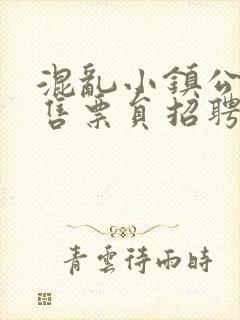 混亂小鎮公
售票員招聘
青雲待雨時